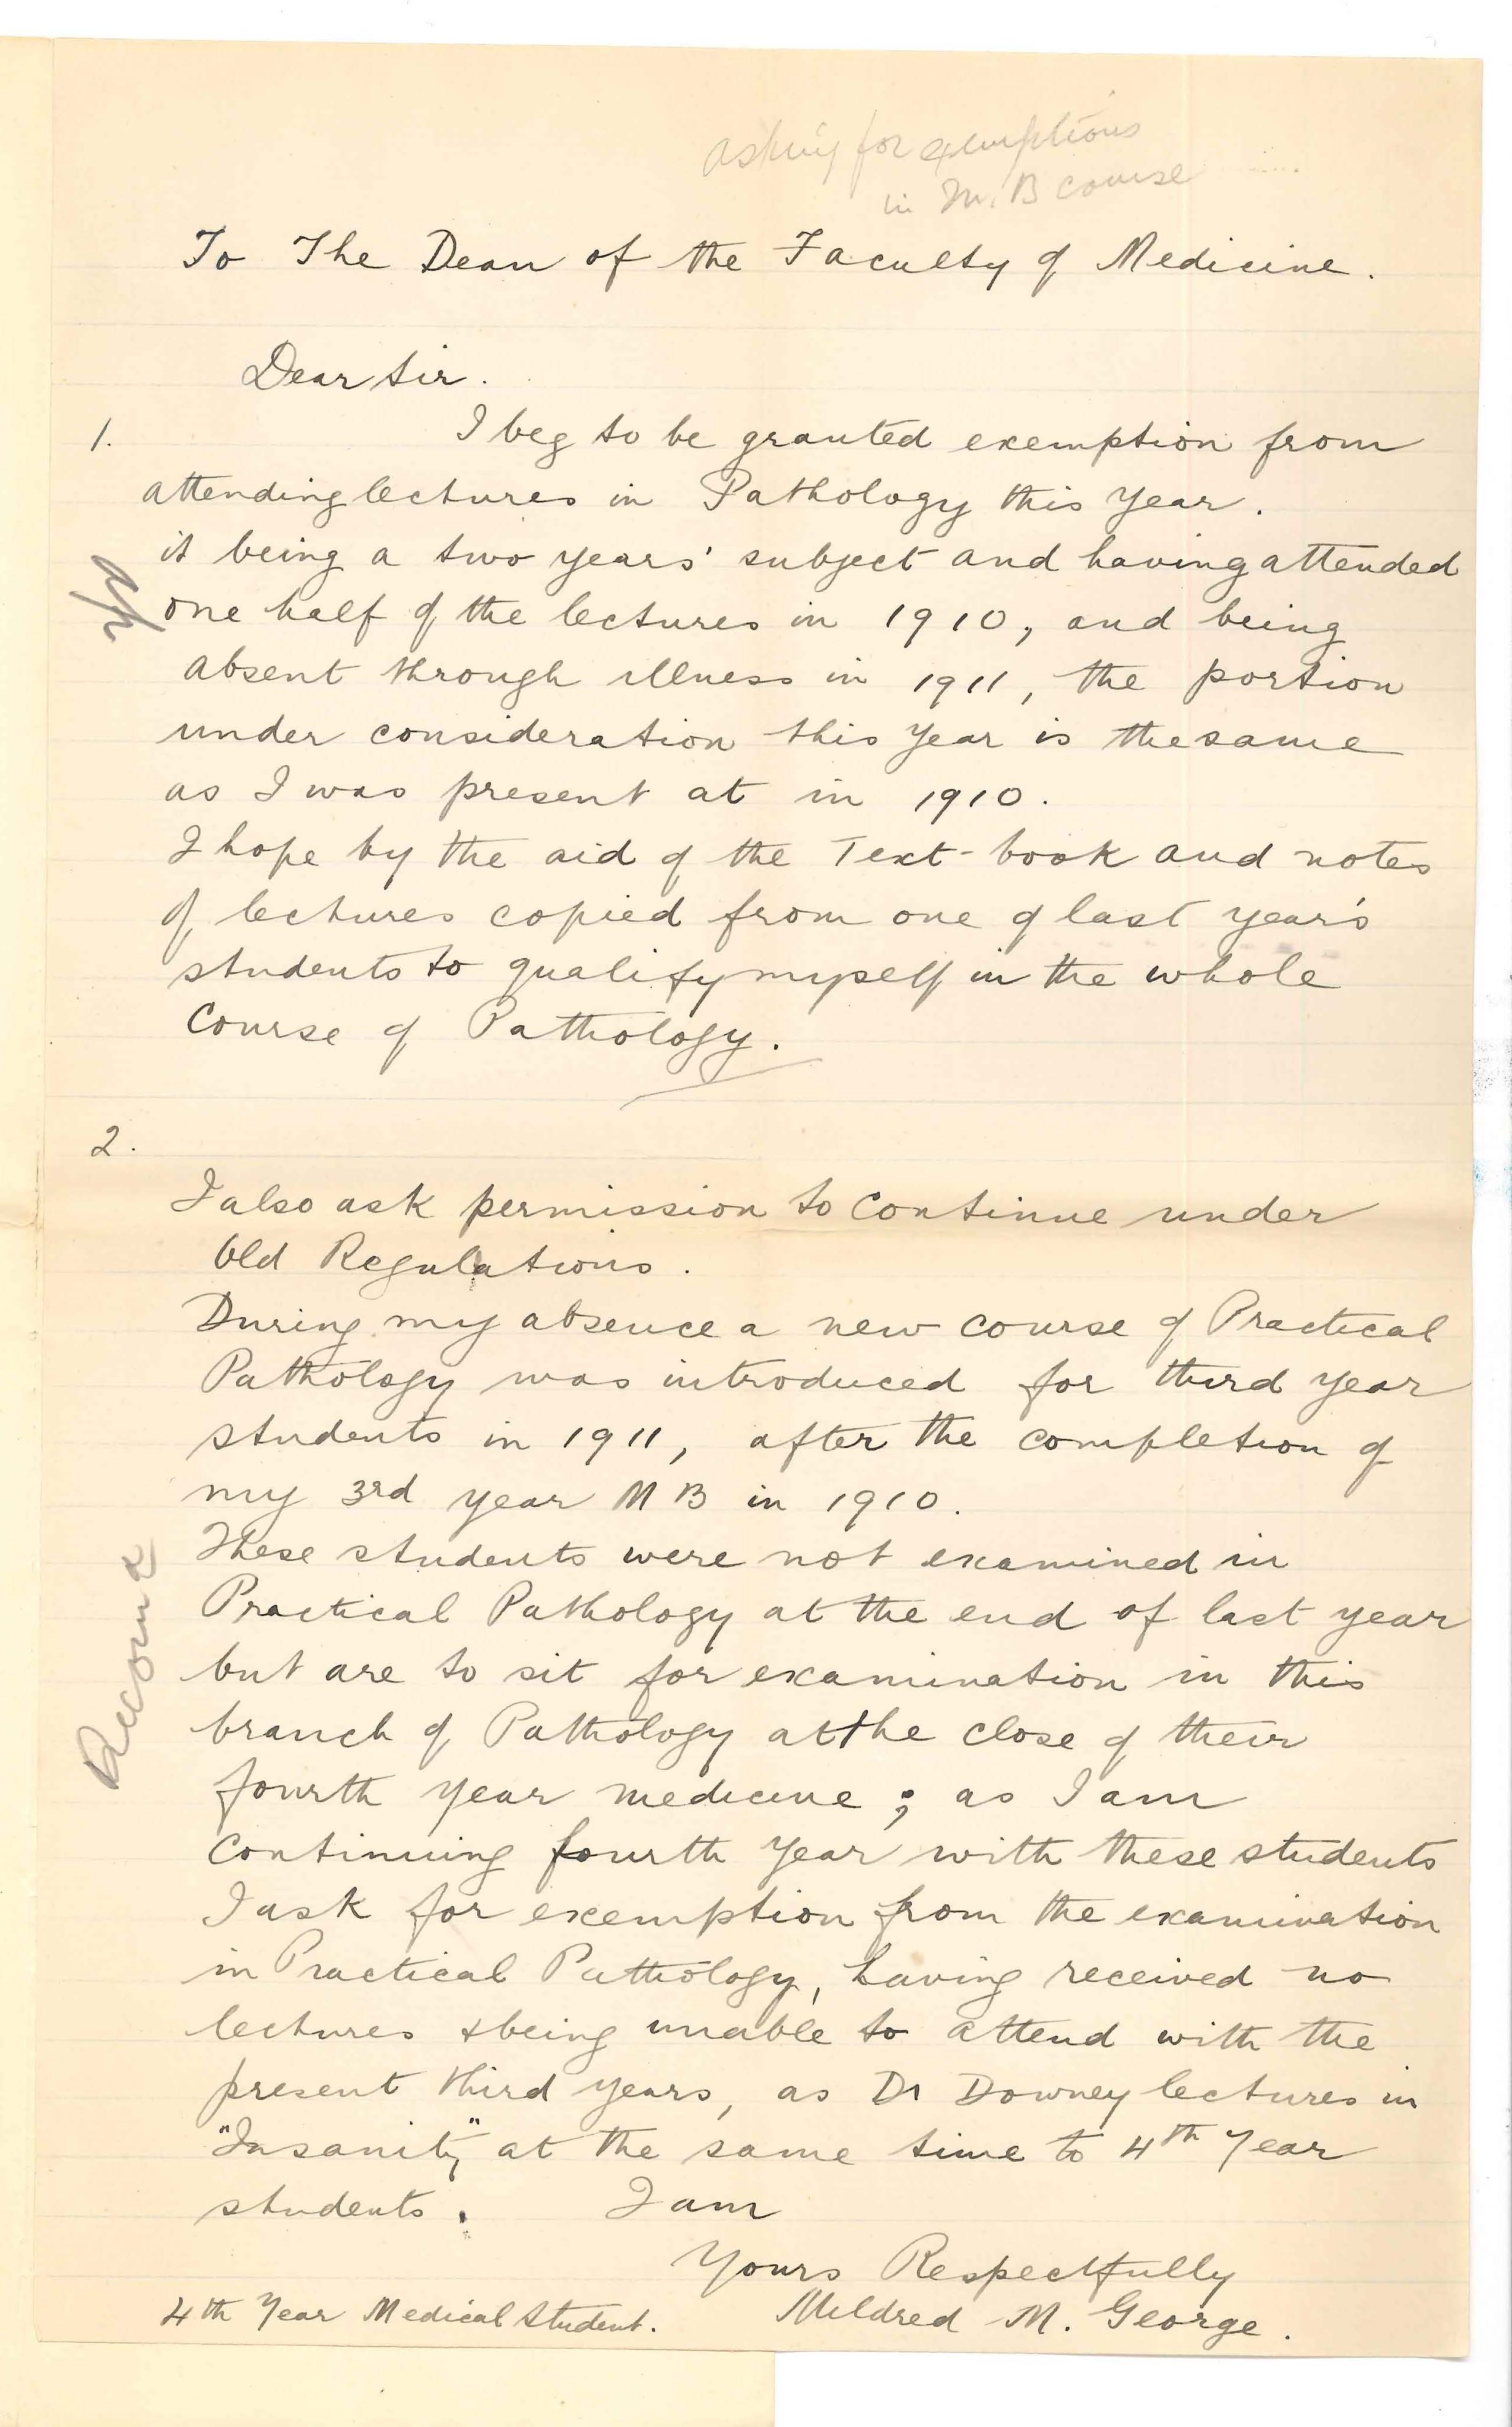 asking for exemptions
in M.B course
To The Dean of the Faculty of Medicine.
Dear Sir.
1. I beg to be granted exemption from
attending lectures in Pathology this year.
it being a two years' subject and having attended
one half of the lectures in 1910, and being
absent through illness in 1911, the portion
under consideration this year is the same
as I was present at in 1910.
I hope by the aid of the Text-book and notes
of lectures copied from one of last year's
students to qualify myself in the whole
course of Pathology.
2.
I also ask permission to continue under
Old Regulations.
During my absence a new course of Practical
Pathology was introduced for third year
students in 1911, after the completion of
my 3rd year M B in 1910.
These students were not examined in
Practical Pathology at the end of last year
but are to sit for examination in this
branch of Pathology at the close of their
fourth year medicine; as I am
continuing fourth year with these students
I ask for exemption from the examination
in Practical Pathology, having received no
lectures & being unable to attend with the
present third years, as Dr Downey lectures in
"Insanity" at the same time to 4th Year
students. I am
Yours Respectfully
4th Year Medical Student. Mildred M. George.